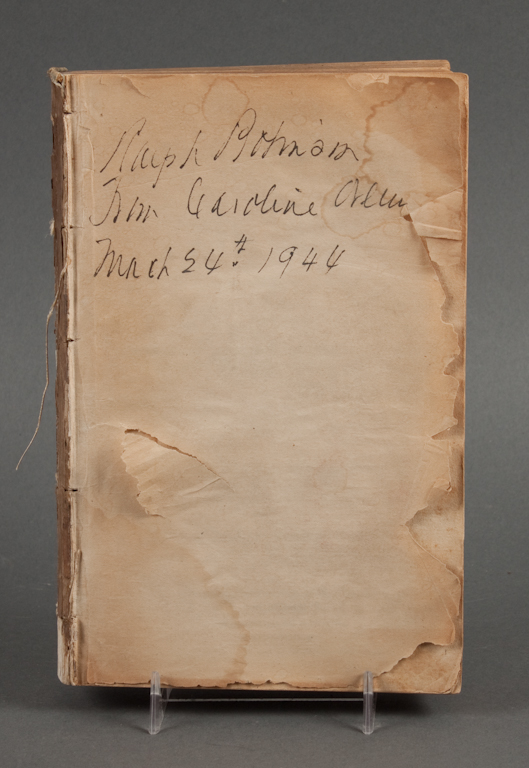 Ralph Robinson
From Caroline
March 24th. 1944